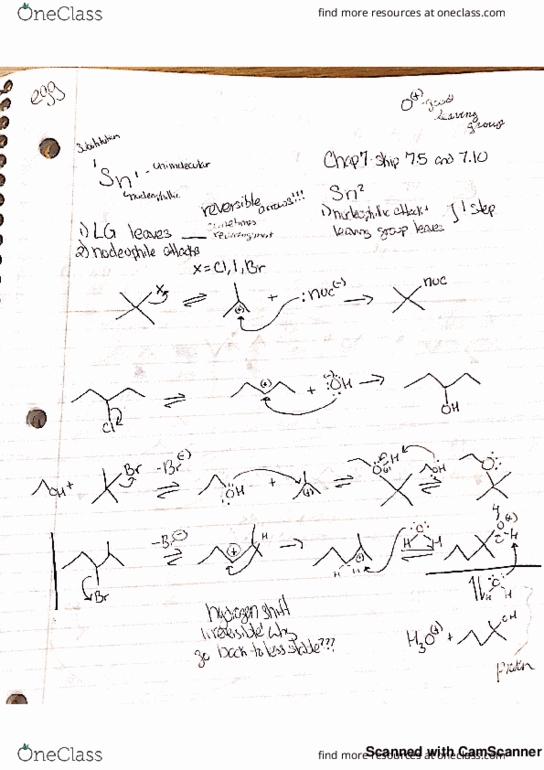 OneClass
find more resources at oneclass.com
egg
O(+) good
leaving
group
Substitution
Sn1 - unimolecular
nucleophilic
Chap 7 - Skip 7.5 and 7.10
Sn2
reversible arrows!!!
1) LG leaves
sometimes
rearrangement
2) nucleophile attacks
1) nucleophilic attack +
leaving group leaves
} 1 step
x = Cl, I, Br
X
(+)
+
:nuc(-)
nuc
Cl
(+)
+
(-):OH
OH
OH +
Br
-Br(-)
OH
+
(+)
H
OH
O:
Br
-Br(-)
(+)
H
(+)
H
H
O
H
O(+)
H
hydrogen shift
irreversible why
go back to less stable???
H3O(+) +
OH
OneClass
find more resources at oneclass.com
Scanned with CamScanner